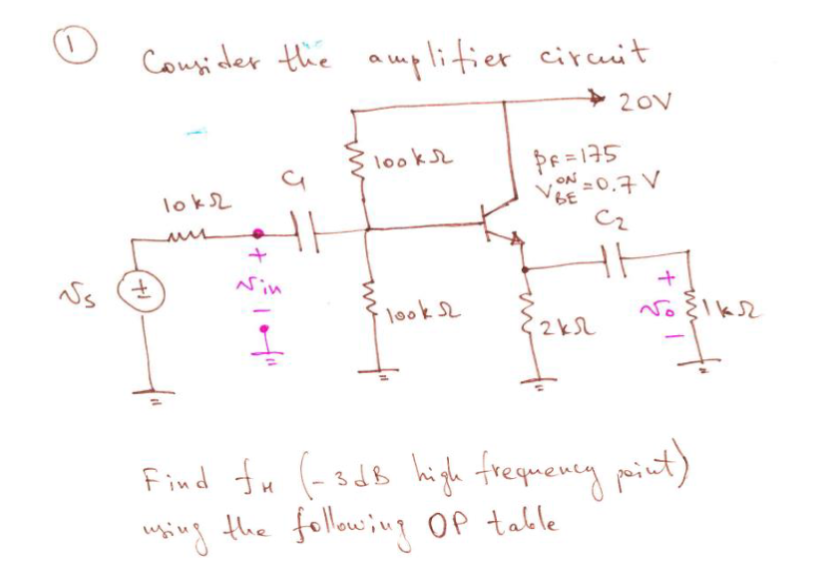 ① Consider the amplifier circuit
20V
100kΩ
βF=175
V_BE^ON=0.7V
C1
10kΩ
C2
+
Vin
-
Vs
±
100kΩ
2kΩ
+
Vo
-
1kΩ
Find fH (-3dB high frequency point)
using the following OP table